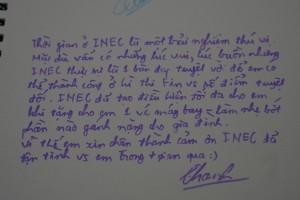 Thời gian ở INEC là một trải nghiệm thú vị.
Mặc dù vẫn có những lúc vui, lúc buồn nhưng
INEC thực sự là 1 bàn đạp tuyệt vời để em có
thể thành công ở kì thi Fin vs số điểm tuyệt
đối. INEC đã tạo điều kiện tối đa cho em
khi tặng cho em 1 vé máy bay - làm nhẹ bớt
phần nào gánh nặng cho gia đình.
Vì thế em xin chân thành cảm ơn INEC đã
tận tình vs em trong t gian qua :)